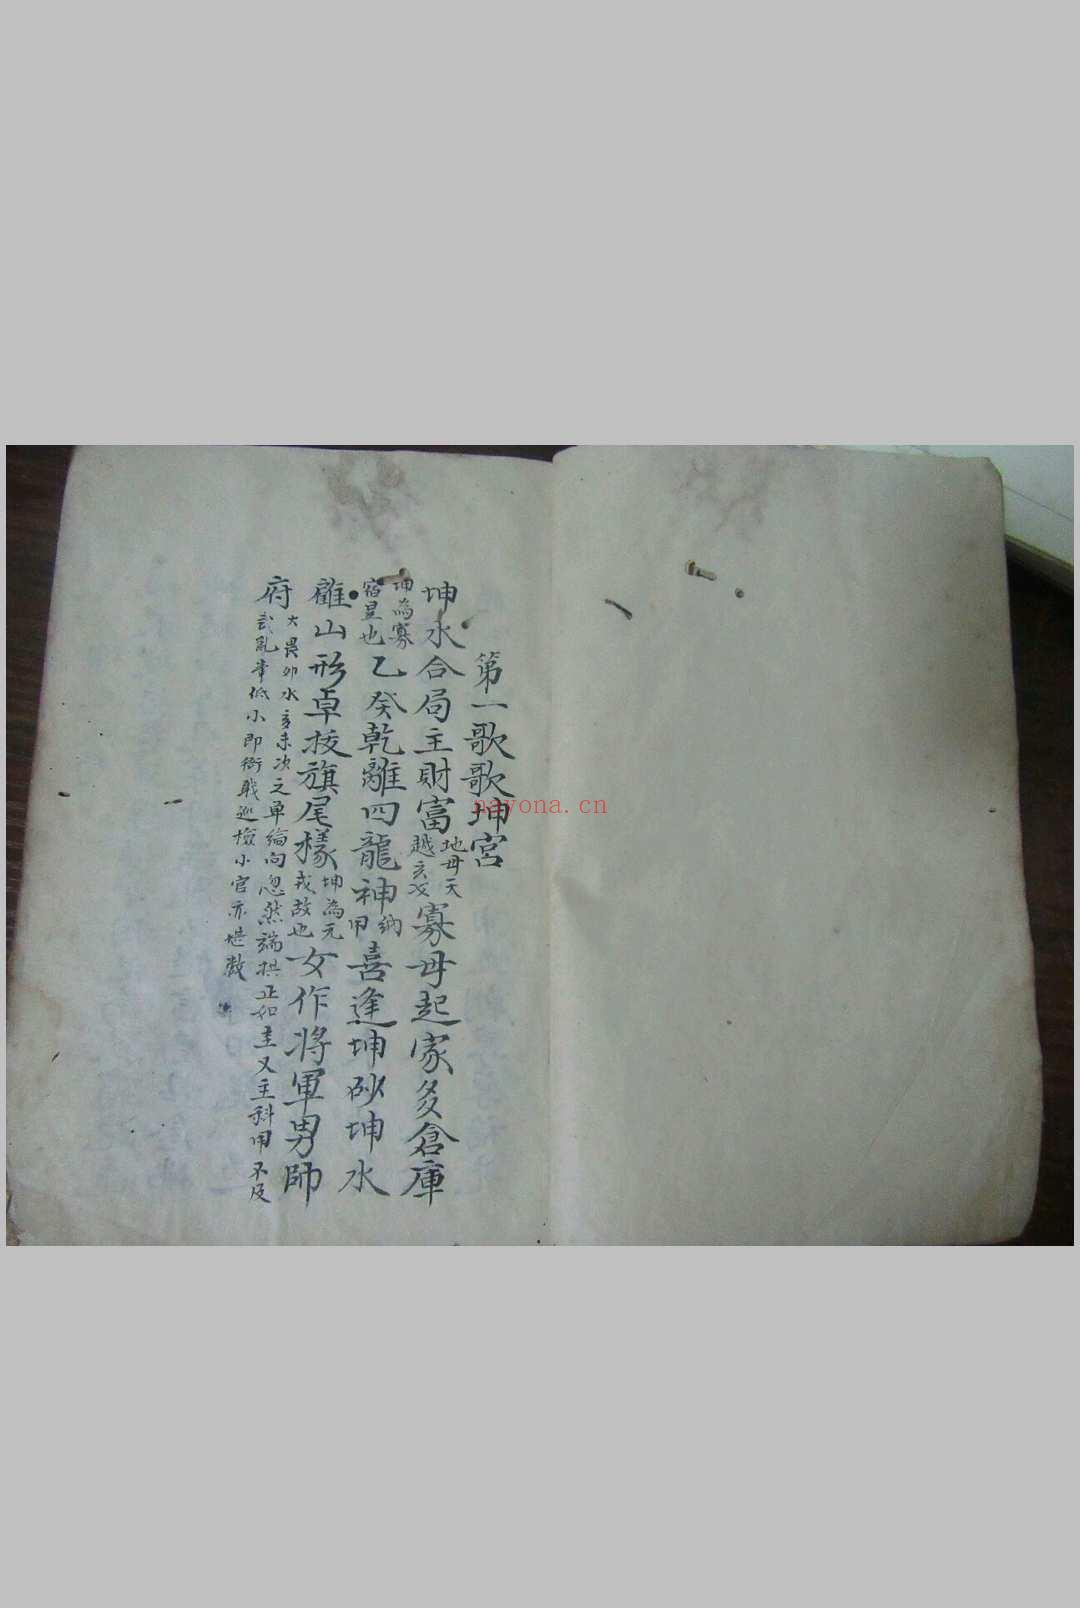 第一歌歌坤宮
坤水合局主財富地毋天越亥攻寡毋起家多倉庫
坤為寡宿星也乙癸乾離四龍神納甲喜逢坤砂坤水
雖山形卓拔旗尾樣坤為元戎故也女作將軍男帥
府大畏卯水亥未次之單編向忽然端拱正如圭又主科甲不及
武亂峯低小即衙職巡檢小官亦堪數
nayona.cn